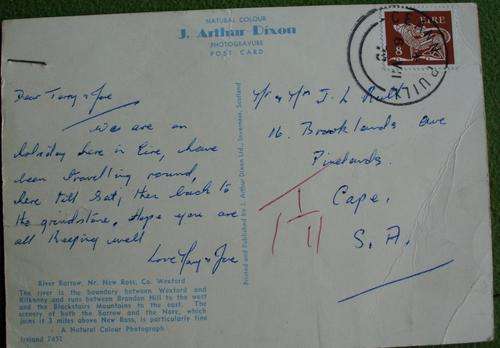 NATURAL COLOUR
J. Arthur Dixon
PHOTOGRAVURE
POST CARD
EIRE
8
Dear Terry &
We are on
holiday here in Eire, have
been travelling round,
here till Sat, then back to
the grindstone. Hope you are
all keeping well
Love Mary &
Mr & Mrs J. L
16. Brooklands Ave
Pinelands.
Cape.
S. A.
Printed and Published by J. Arthur Dixon Ltd., Inverness, Scotland
River Barrow, Nr. New Ross, Co. Wexford
The river is the boundary between Wexford and
Kilkenny and runs between Brandon Hill to the west
and the Blackstairs Mountains to the east. The
scenery of both the Barrow and the Nore, which
joins it 3 miles above New Ross, is particularly fine
A Natural Colour Photograph
Ireland 7451